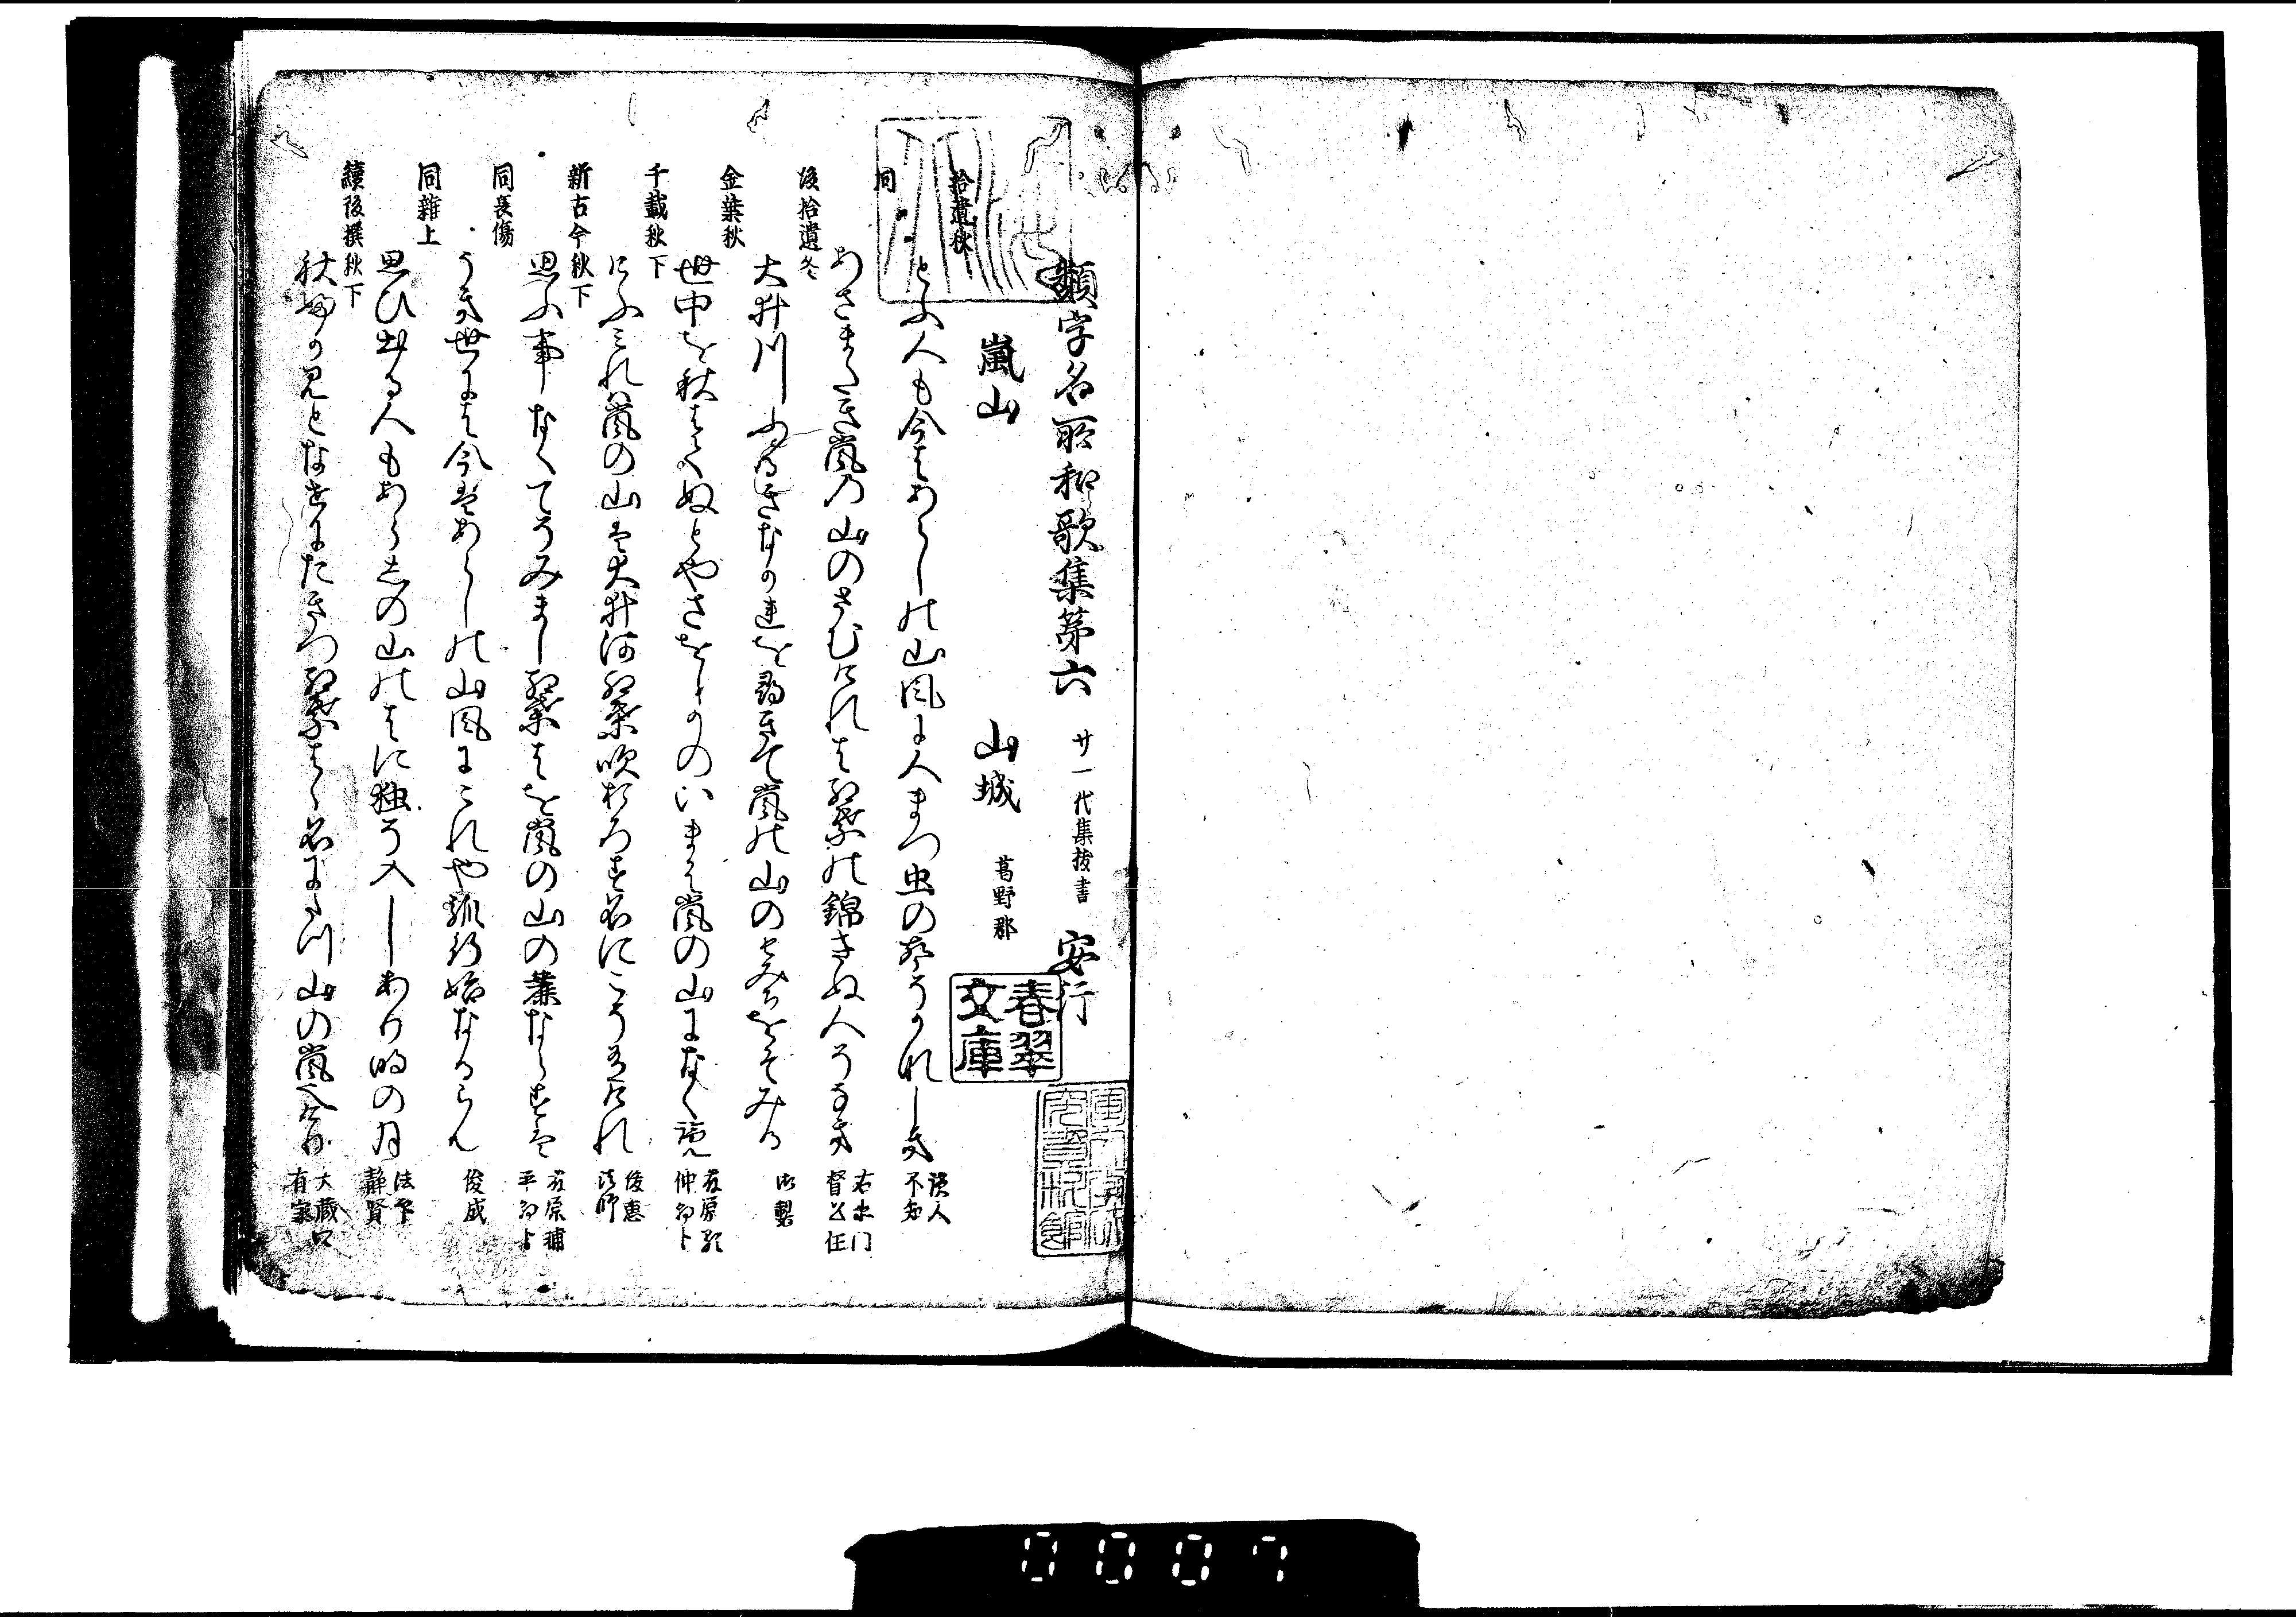 類字名所和歌集第六 廿一代集抜書 安行
嵐山 山城 葛野郡
春翠文庫
拾遺秋
とふ人も今はあらしの山風に人まつ虫の声そかなしき 読人不知
同
あさまたき嵐の山のさむけれは紅葉の錦きぬ人そなき 右衛門督公任
後拾遺冬
大井川ふるきなかれを尋きて嵐の山のもみちをそみる 御製
金葉秋
世中を秋はてぬとやさをしかのいまは嵐の山になく覧 藤原顕仲朝臣
千載秋下
けふみれは嵐の山は大井河紅葉吹おろす名にこそ有けれ 俊恵法師
新古今秋下
思ふ事なくてそみまし紅葉はを嵐の山の麓ならすは 藤原輔尹朝臣
同哀傷
うき世には今はあらしの山風にこれや馴行始なるらん 俊成
同雑上
思ひ出る人もあらしの山のはに独そ入し有明の月 法印静賢
續後撰秋下
大蔵卿有家
0007